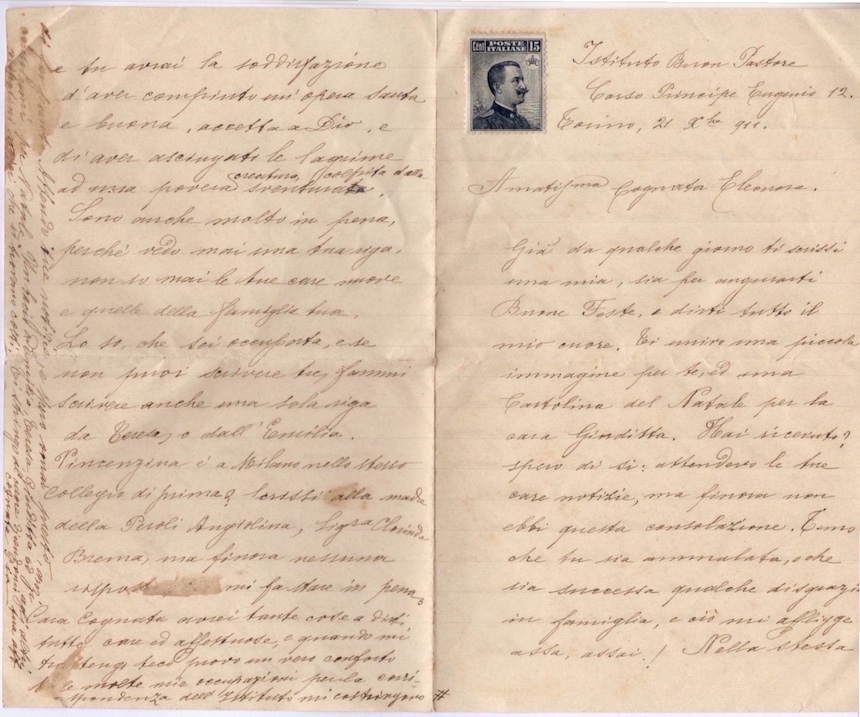 Cent. POSTE ITALIANE 15
Istituto Buon Pastore
Corso Principe Eugenio 12.
Torino, 21 Xbre 911.
Amatissma Cognata Eleonora.
Già da qualche giorno ti scrissi
una mia, sia per augurarti
Buone Feste, e dirti tutto il
mio cuore. Ti univo una piccola
immagine per te, ed una
Cartolina del Natale per la
cara Giuditta. Hai ricevuto?
spero di si: attendevo le tue
care notizie, ma finora non
ebbi questa consolazione. Temo
che tu sia ammalata, o che
sia successa qualche disgrazi
in famiglia, e ciò mi affligge
assa, assai! Nella stessa
e tu avrai la soddisfazione
d'aver compiuto un'opera santa
e buona, accetta a Dio, e
di aver asciugati le lagrime
ad una povera creatura, colpita dalla
sventurata.
Sono anche molto in pena,
perché vedo mai una tua riga,
non so mai le tue care nuove
e quelle della famiglia tua.
Lo so, che sei occupata, e se
non puoi scrivere tu, fammi
scrivere anche una sola riga
da Teresa, o dall'Emilia.
Vincenzina è a Milano nello stesso
Collegio di prima? Scrissi alla madre
della Peroli Angiolina, Sigra Clorinda
Brema, ma finora nessuna
mi fa stare in pena,
Cara Cognata avrei tante cose a dirti
tutto care ed affettuose, e quando mi
trattengo teco provo un vero conforto
le molte mie occupazioni per la corri-
spondenza dell'Istituto mi costringono #
Attendo tue notizie